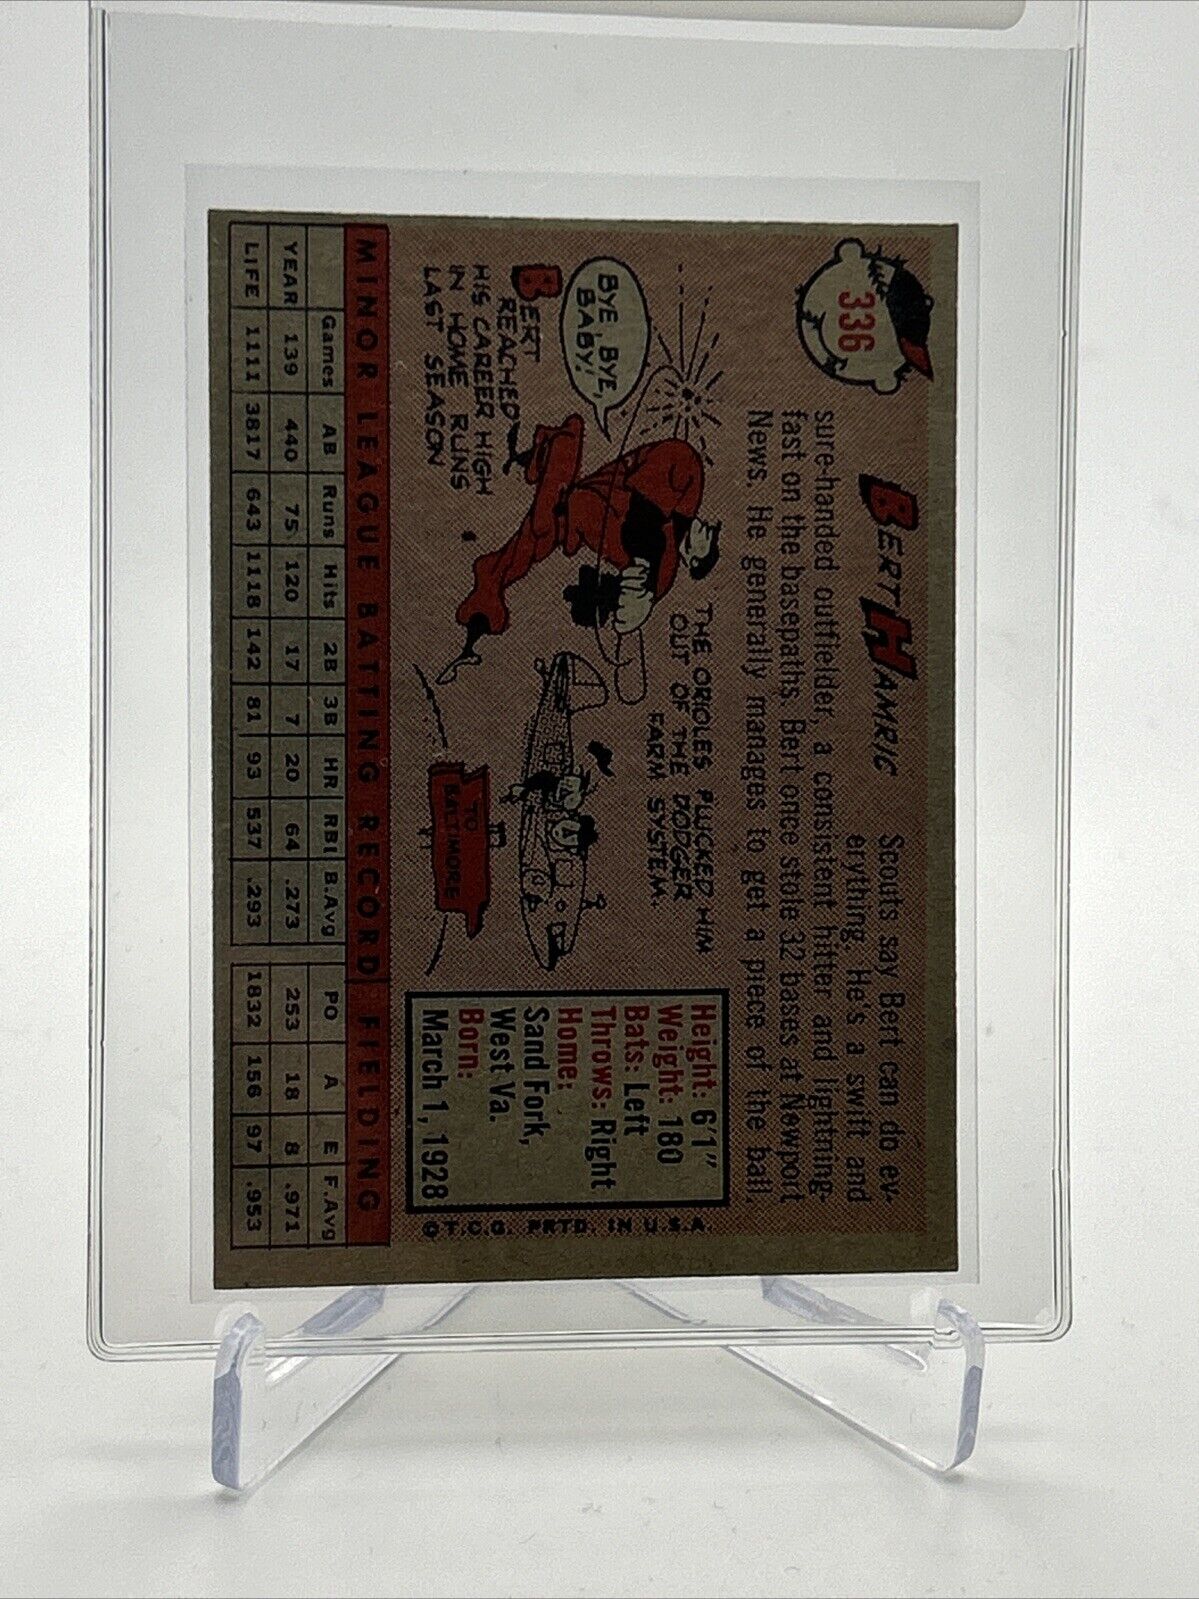 336
BERT HAMRIC
Scouts say Bert can do ev-
erything. He's a swift and
sure-handed outfielder, a consistent hitter and lightning-
fast on the basepaths. Bert once stole 32 bases at Newport
News. He generally manages to get a piece of the ball.
BYE, BYE,
BABY!
BERT
REACHED
HIS CAREER HIGH
IN HOME RUNS
LAST SEASON
THE ORIOLES PLUCKED HIM
OUT OF THE DODGER
FARM SYSTEM.
TO
BALTIMORE
Height: 6'1"
Weight: 180
Bats: Left
Throws: Right
Home:
Sand Fork,
West Va.
Born:
March 1, 1928
©T.C.G. PRTD. IN U.S.A.
MINOR LEAGUE BATTING RECORD FIELDING
Games AB Runs Hits 2B 3B HR RBI B.Avg PO A E F.Avg
YEAR 139 440 75 120 17 7 20 64 .273 253 18 8 .971
LIFE 1111 3817 643 1118 142 81 93 537 .293 1832 156 97 .953